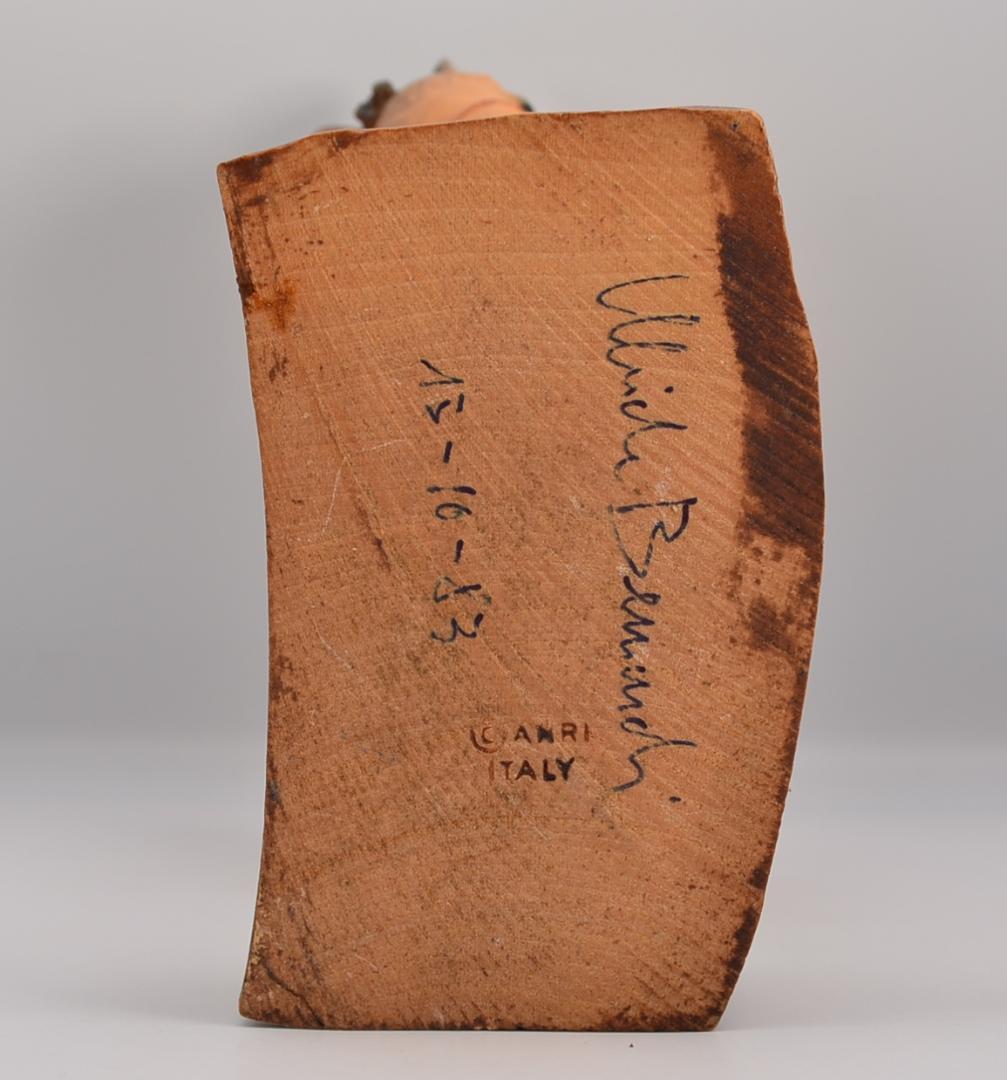 Ulrich Bernardi
15-10-83
© ANRI
ITALY